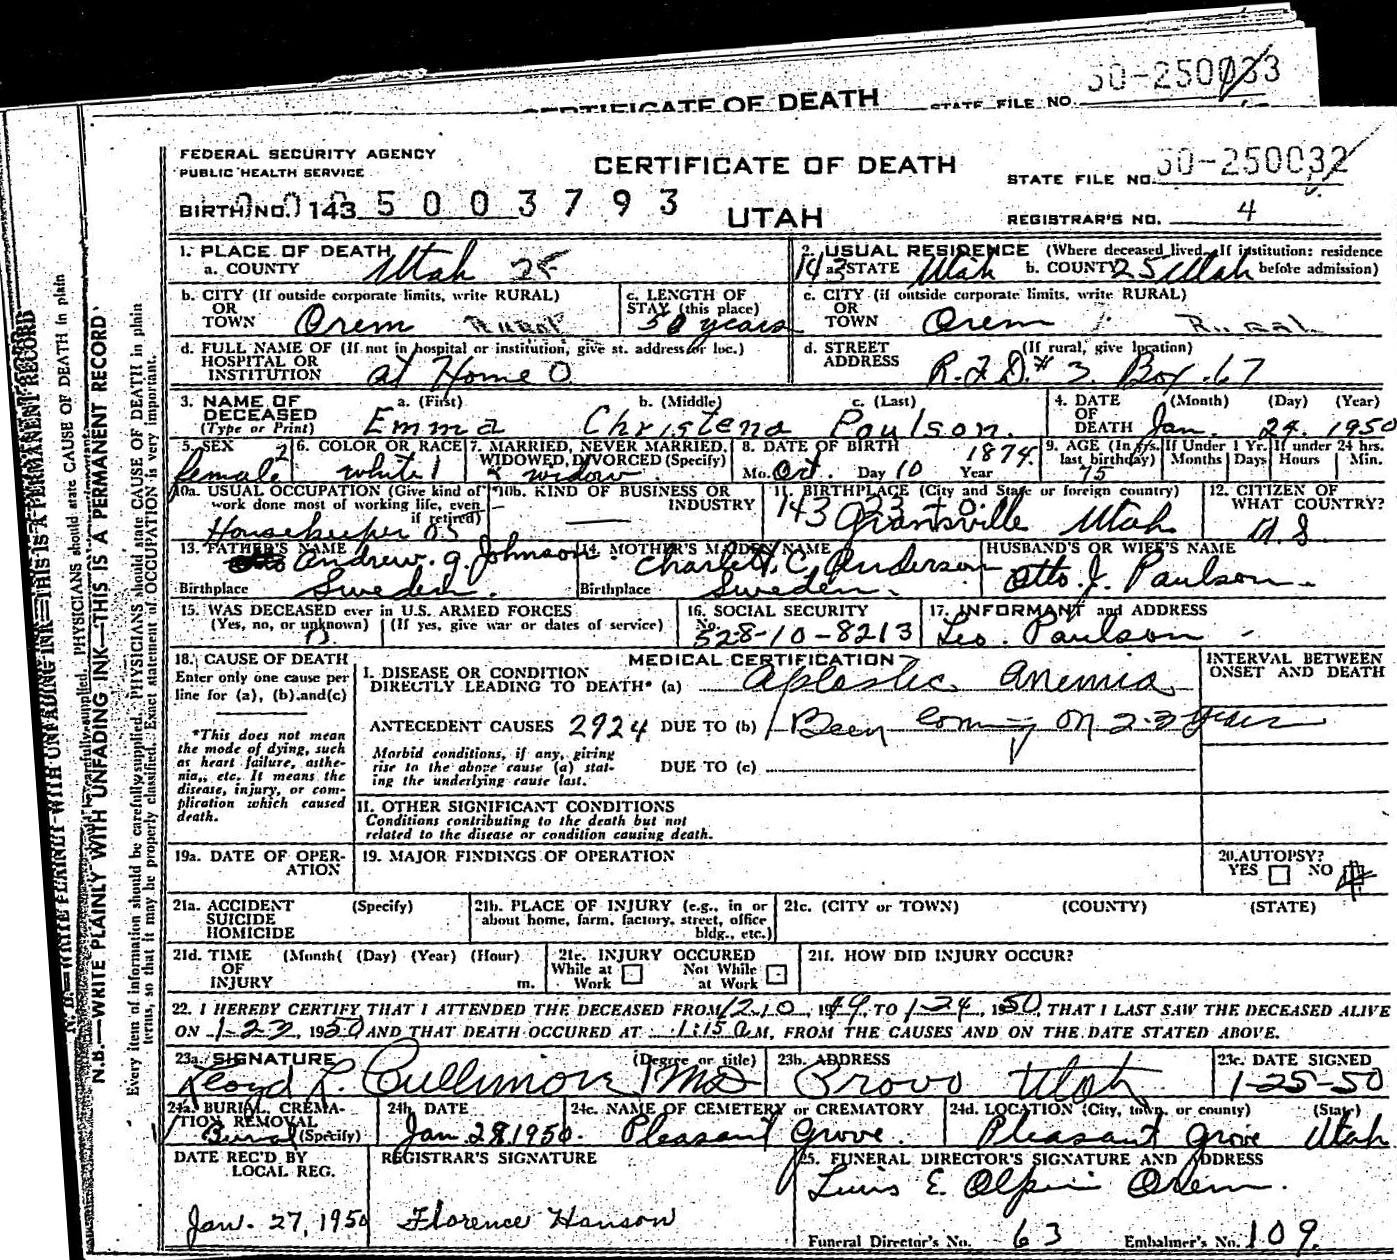 50-250033
CERTIFICATE OF DEATH STATE FILE NO.
FEDERAL SECURITY AGENCY
PUBLIC HEALTH SERVICE
CERTIFICATE OF DEATH
STATE FILE NO. 50-250032
BIRTH NO. 143 5 0 0 3 7 9 3
UTAH
REGISTRAR'S NO. 4
1. PLACE OF DEATH
a. COUNTY Utah 25
2. USUAL RESIDENCE (Where deceased lived. If institution: residence
143 STATE Utah b. COUNTY 25 Utah before admission)
b. CITY (If outside corporate limits, write RURAL)
OR
TOWN Orem Rural
c. LENGTH OF
STAY (this place)
50 years
c. CITY (if outside corporate limits, write RURAL)
OR
TOWN Orem Rural
d. FULL NAME OF (If not in hospital or institution, give st. address or loc.)
HOSPITAL OR
INSTITUTION at Home 0
d. STREET (If rural, give location)
ADDRESS R.F.D.# 3. Box 67
3. NAME OF DECEASED
(Type or Print)
a. (First) b. (Middle) c. (Last)
Emma Christena Paulson.
4. DATE OF DEATH
(Month) (Day) (Year)
Jan. 24, 1950
5. SEX 2
female
6. COLOR OR RACE
white 1
7. MARRIED, NEVER MARRIED,
WIDOWED, DIVORCED (Specify)
widow
8. DATE OF BIRTH 1874.
Mo. Oct. Day 10 Year
9. AGE (In yrs. last birthday)
75
If Under 1 Yr. Months Days
If under 24 hrs. Hours Min.
10a. USUAL OCCUPATION (Give kind of
work done most of working life, even
if retired)
Housekeeper 05
10b. KIND OF BUSINESS OR
INDUSTRY
11. BIRTHPLACE (City and State or foreign country)
143 23 - 0
Grantsville Utah
12. CITIZEN OF
WHAT COUNTRY?
U.S.
13. FATHER'S NAME
Andrew. G. Johnson
Birthplace Sweden.
14. MOTHER'S MAIDEN NAME
C. Anderson
Birthplace Sweden.
HUSBAND'S OR WIFE'S NAME
Otto. J. Paulson.
15. WAS DECEASED ever in U.S. ARMED FORCES
(Yes, no, or unknown) (If yes, give war or dates of service)
16. SOCIAL SECURITY
No.
528-10-8213
17. INFORMANT and ADDRESS
Leo. Paulson
18. CAUSE OF DEATH
Enter only one cause per
line for (a), (b) and (c)
*This does not mean
the mode of dying, such
as heart failure, asthe-
nia, etc. It means the
disease, injury, or com-
plication which caused
death.
MEDICAL CERTIFICATION
INTERVAL BETWEEN
ONSET AND DEATH
I. DISEASE OR CONDITION
DIRECTLY LEADING TO DEATH* (a) Aplastic anemia
ANTECEDENT CAUSES 2924 DUE TO (b) Been coming on 2-3 years
Morbid conditions, if any, giving
rise to the above cause (a) stat-
ing the underlying cause last.
DUE TO (c)
II. OTHER SIGNIFICANT CONDITIONS
Conditions contributing to the death but not
related to the disease or condition causing death.
19a. DATE OF OPER-
ATION
19. MAJOR FINDINGS OF OPERATION
20. AUTOPSY?
YES NO
21a. ACCIDENT (Specify)
SUICIDE
HOMICIDE
21b. PLACE OF INJURY (e.g., in or
about home, farm, factory, street, office
bldg., etc.)
21c. (CITY or TOWN) (COUNTY) (STATE)
21d. TIME (Month( (Day) (Year) (Hour)
OF
INJURY m.
21e. INJURY OCCURED
While at Work Not While at Work
21f. HOW DID INJURY OCCUR?
22. I HEREBY CERTIFY THAT I ATTENDED THE DECEASED FROM 12-10, 1949, TO 1-24, 1950, THAT I LAST SAW THE DECEASED ALIVE
ON 1-23, 1950 AND THAT DEATH OCCURED AT 1:15 a M, FROM THE CAUSES AND ON THE DATE STATED ABOVE.
23a. SIGNATURE (Degree or title)
Lloyd L. Cullimore MD
23b. ADDRESS
Provo Utah
23c. DATE SIGNED
1-25-50
24a. BURIAL, CREMA-
TION REMOVAL
Burial (Specify)
24b. DATE
Jan. 28, 1950.
24c. NAME OF CEMETERY or CREMATORY
Pleasant Grove.
24d. LOCATION (City, town, or county) (State)
Pleasant Grove Utah
DATE REC'D BY
LOCAL REG.
Jan. 27, 1950
REGISTRAR'S SIGNATURE
Florence Hanson
25. FUNERAL DIRECTOR'S SIGNATURE AND ADDRESS
E. Orem.
Funeral Director's No. 63 Embalmer's No. 109.
N.B.—WRITE PLAINLY WITH UNFADING INK—THIS IS A PERMANENT RECORD
PHYSICIANS should state CAUSE OF DEATH in plain
N.B.—WRITE PLAINLY WITH UNFADING INK—THIS IS A PERMANENT RECORD
Every item of information should be carefully supplied. PHYSICIANS should state CAUSE OF DEATH in plain
terms, so that it may be properly classified. Exact statement of OCCUPATION is very important.